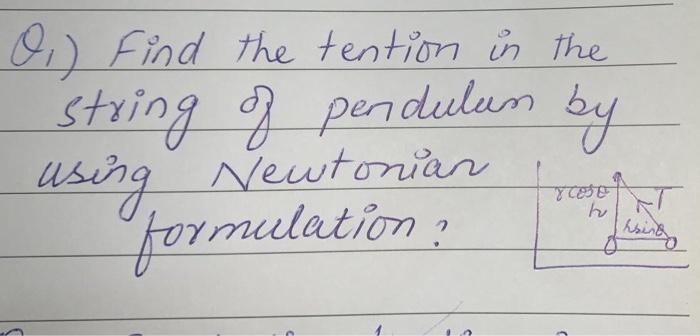 Q1) Find the tention in the
string of pendulum by
using Newtonian
formulation?
r cosθ
T
h
hsinθ